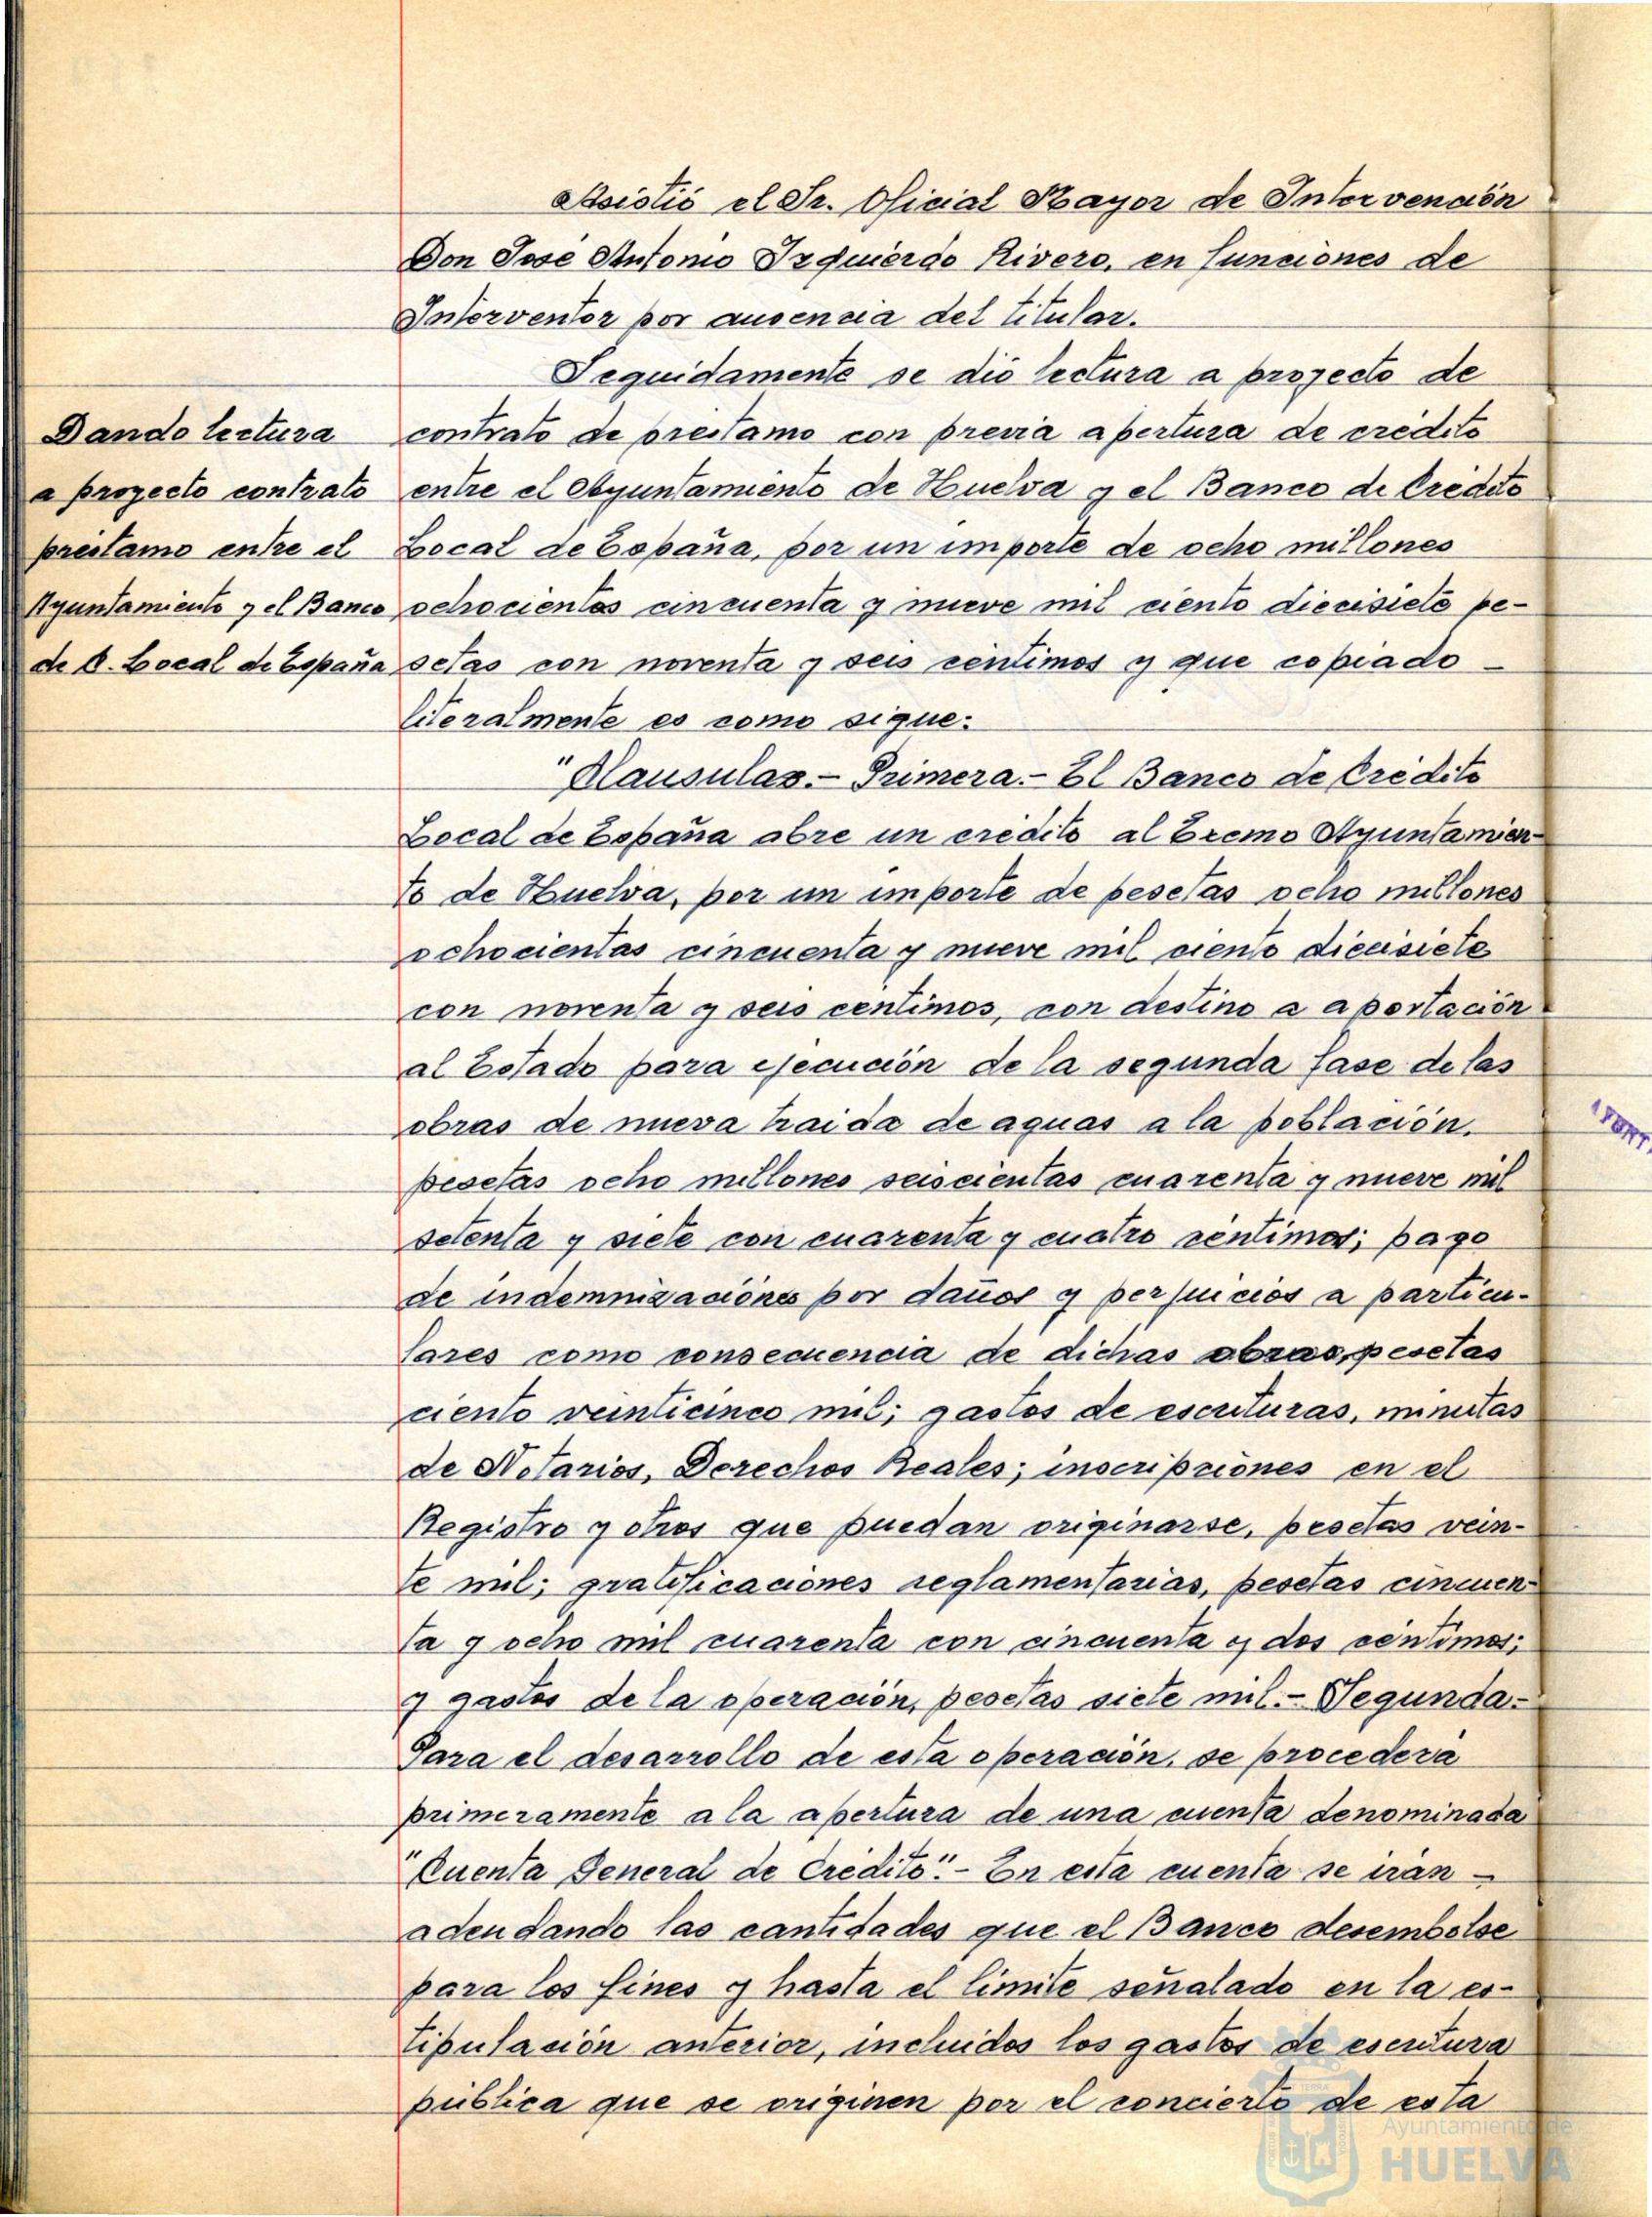 Asistió el Sr. Oficial Mayor de Intervención
Don José Antonio Izquierdo Rivero, en funciones de
Interventor por ausencia del titular.
Seguidamente se dió lectura a proyecto de
Dando lectura
a proyecto contrato
prestamo entre el
Ayuntamiento y el Banco
de C. Local de España
contrato de prestamo con previa apertura de crédito
entre el Ayuntamiento de Huelva y el Banco de Crédito
Local de España, por un importe de ocho millones
ochocientas cincuenta y nueve mil ciento diecisiete pe-
setas con noventa y seis centimos y que copiado -
literalmente es como sigue:
"Clausulas.- Primera.- El Banco de Crédito
Local de España abre un credito al Excmo Ayuntamien-
to de Huelva, por un importe de pesetas ocho millones
ochocientas cincuenta y nueve mil ciento diecisiete
con noventa y seis centimos, con destino a aportación
al Estado para ejecución de la segunda fase de las
obras de nueva traida de aguas a la población,
pesetas ocho millones seiscientas cuarenta y nueve mil
setenta y siete con cuarenta y cuatro céntimos; pago
de indemnizaciónes por daños y perjuicios a particu-
lares como consecuencia de dichas obras, pesetas
ciento veinticinco mil; gastos de escrituras, minutas
de Notarios, Derechos Reales; inscripciónes en el
Registro y otros que puedan originarse, pesetas vein-
te mil; gratificaciónes reglamentarias, pesetas cincuen-
ta y ocho mil cuarenta con cincuenta y dos céntimos;
y gastos de la operación, pesetas siete mil.- Segunda-
Para el desarrollo de esta operación, se procederá
primeramente a la apertura de una cuenta denominada
"Cuenta General de Crédito".- En esta cuenta se irán -
adeudando las cantidades que el Banco desembolse
para los fines y hasta el limite señalado en la es-
tipulación anterior, incluidos los gastos de escritura
pública que se originen por el concierto de esta
Ayuntamiento de
HUELVA